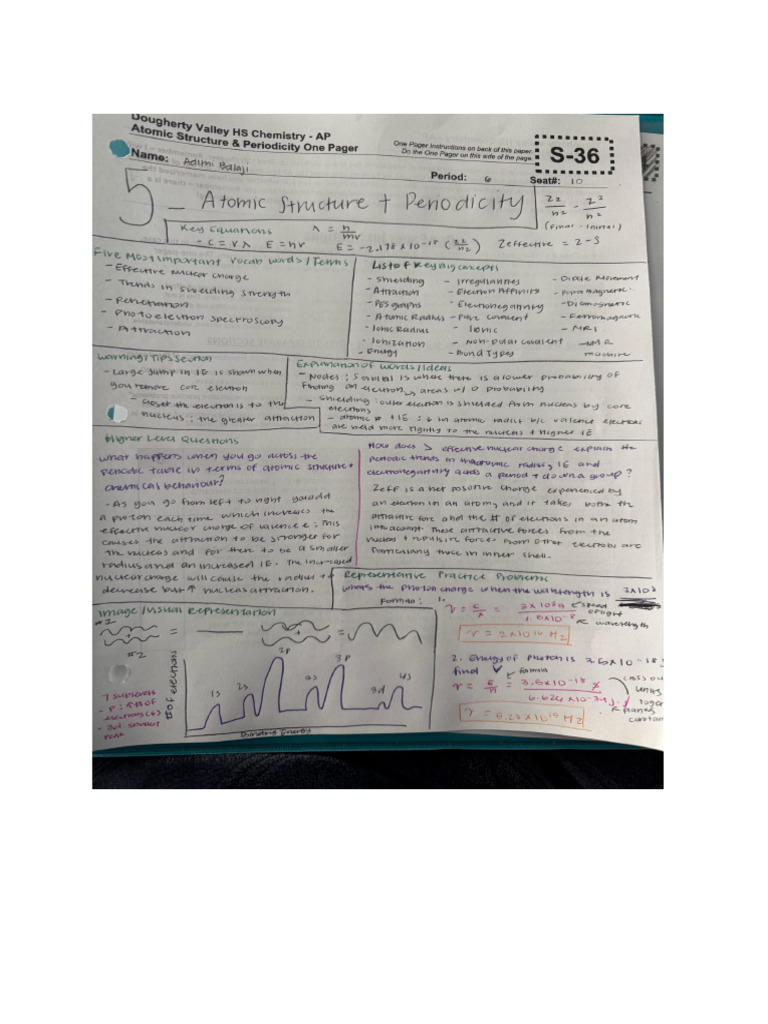 Dougherty Valley HS Chemistry - AP
Atomic Structure & Periodicity One Pager
One Pager Instructions on back of this paper.
Do the One Pager on this side of the page.
S-36
Name: Balaji
Period: 6 Seat#: 10
5 - Atomic Structure + Periodicity
(final - initial)
Key Equations λ = h/mv
- C = vλ E = hv E = -2.178 x 10^-18 Zeffective = Z - S
Five Most Important Vocab Words / Terms
- Effective nuclear charge
- Trends in shielding strength
- Penetration
- Photoelectron Spectroscopy
- Attraction
List of Key Big Concepts
- Shielding - Irregularities - Dipole Movement
- Attraction - Electron Affinity - Paramagnetic
- PES graphs - Electronegativity - Diamagnetic
- Atomic Radius - Pure Covalent - Ferromagnetic
- Ionic Radius - Ionic - MRI
- Ionization - Non-Polar Covalent - NMR
Energy - Bond Types machine
Warning / Tips Section
- Large jump in IE is shown when
you remove core electron
- closer the electron is to the
nucleus: the greater attraction
Explanation of Words / Ideas
- Nodes: S orbital is where there is a lower probability of
finding an electron, areas w/ 0 probability
- Shielding: outer electron is shielded from nucleus by core
electrons
- atomic # ↑ IE: in atomic radius b/c valence electrons
are held more tightly to the nucleus + higher IE
Higher Level Questions
What happens when you go across the
periodic table in terms of atomic structure +
chemical behaviour?
- As you go from left to right you add
a proton each time which increases the
effective nuclear charge of valence e: This
causes the attraction to be stronger for
the nucleus and for there to be a smaller
radius and an increased IE. The increased
nuclear charge will cause the radius to
decrease but ↑ nucleus attraction.
How does effective nuclear charge explain the
periodic trends in radius, IE and
electronegativity across a period + down a group?
Zeff is a net positive charge experienced by
an electron in an atom, and it takes both the
attractive force and the # of electrons in an atom
into account. These attractive forces from the
nucleus + repulsive forces from other electrons are
particularly those in inner shell.
Representative Practice Problems
whats the photon charge when the wavelength is
Formula: 1. v = c/λ = speed of light
wavelength
v = 2x10^16 Hz
2. Energy of photon is 3.5x10^-18 J
find v formula
v = E/h = 3.5x10^-18 J / 6.626x10^-34 J·s
units
planks
Image / Visual Representation
#1
= =
#2
# of electrons
1s 2s 2p 3s 3p 3d 4s
Binding Energy
7 sublevels